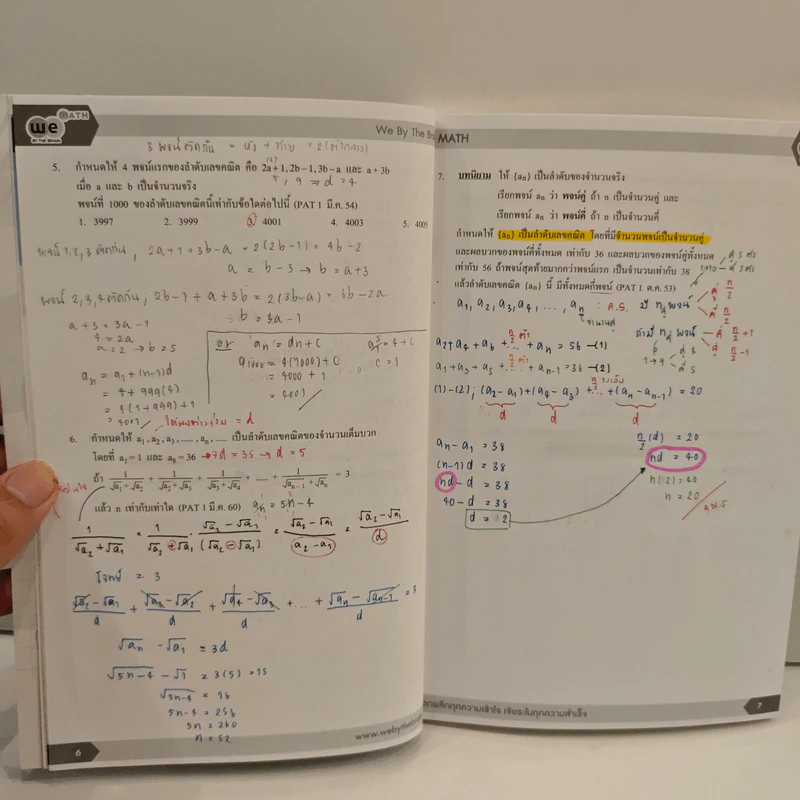 We MATH
BY THE BRAIN
We By The Bra
3 พจน์ติดกัน = หัว + ท้าย = 2(ตัวกลาง)
5. กำหนดให้ 4 พจน์แรกของลำดับเลขคณิต คือ 2a+1, 2b-1, 3b-a และ a+3b
5, 9 → d = 4
เมื่อ a และ b เป็นจำนวนจริง
พจน์ที่ 1000 ของลำดับเลขคณิตนี้เท่ากับข้อใดต่อไปนี้ (PAT 1 มี.ค. 54)
1. 3997 2. 3999 3. 4001 4. 4003 5. 4005
พจน์ 1,2,3 ติดกัน, 2a+1+3b-a = 2(2b-1) = 4b-2
a = b-3 → b = a+3
พจน์ 2,3,4 ติดกัน; 2b-1 + a+3b = 2(3b-a) = 6b-2a
b = 3a-1
a+3 = 3a-1
4 = 2a
a = 2 → b = 5
an = a1+(n-1)d
= 4+999(4)
= 4(1+999)+1
= 4001
or an = dn + c
a1000 = 4(1000)+C
= 4000 + 1
= 4001
c = 1
= d
6. กำหนดให้ a1, a2, a3, ....., an, ..... เป็นลำดับเลขคณิตของจำนวนเต็มบวก
โดยที่ a1 = 1 และ a8 = 36 → 7d = 35 → d = 5
ถ้า 1/(√a1+√a2) + 1/(√a2+√a3) + 1/(√a3+√a4) + ..... + 1/(√an-1+√an) = 3
แล้ว n เท่ากับเท่าใด (PAT 1 มี.ค. 60) an = 5n-4
1/(√a2+√a1) = 1/(√a2+√a1) · (√a2-√a1)/(√a2-√a1) = (√a2-√a1)/(a2-a1) = (√a2-√a1)/d
โจทย์ = 3
(√a2-√a1)/d + (√a3-√a2)/d + (√a4-√a3)/d + ... + (√an-√an-1)/d = 3
√an - √a1 = 3d
√5n-4 - √1 = 3(5) = 15
√5n-4 = 16
5n-4 = 256
5n = 260
n = 52
6
www.webythebra
MATH
7. บทนิยาม ให้ {an} เป็นลำดับของจำนวนจริง
เรียกพจน์ an ว่า พจน์คู่ ถ้า n เป็นจำนวนคู่ และ
เรียกพจน์ an ว่า พจน์คี่ ถ้า n เป็นจำนวนคี่
กำหนดให้ {an} เป็นลำดับเลขคณิต โดยที่มีจำนวนพจน์เป็นจำนวนคู่
และผลบวกของพจน์คี่ทั้งหมด เท่ากับ 36 และผลบวกของพจน์คู่ทั้งหมด
เท่ากับ 56 ถ้าพจน์สุดท้ายมากกว่าพจน์แรก เป็นจำนวนเท่ากับ 38
แล้วลำดับเลขคณิต {an} นี้ มีทั้งหมดกี่พจน์ (PAT 1 ต.ค. 53)
a1, a2, a3, a4, ..., an : A.S. มี n พจน์ คู่ n/2
คี่ n/2
ถ้ามี n พจน์ คี่ n/2 +
คู่ n/2 -
a2+a4+a6+...+an = 56 -(1)
a1+a3+a5+...+an-1 = 36 -(2)
(1)-(2); (a2-a1)+(a4-a3)+...+(an-an-1) = 20
d d d
an-a1 = 38
(n-1)d = 38
nd - d = 38
40-d = 38
d = 2
n/2 (d) = 20
nd = 40
n(2) = 40
n = 20
ผลึกทุกความเข้าใจ เจียระไนทุกความสำเร็จ
7